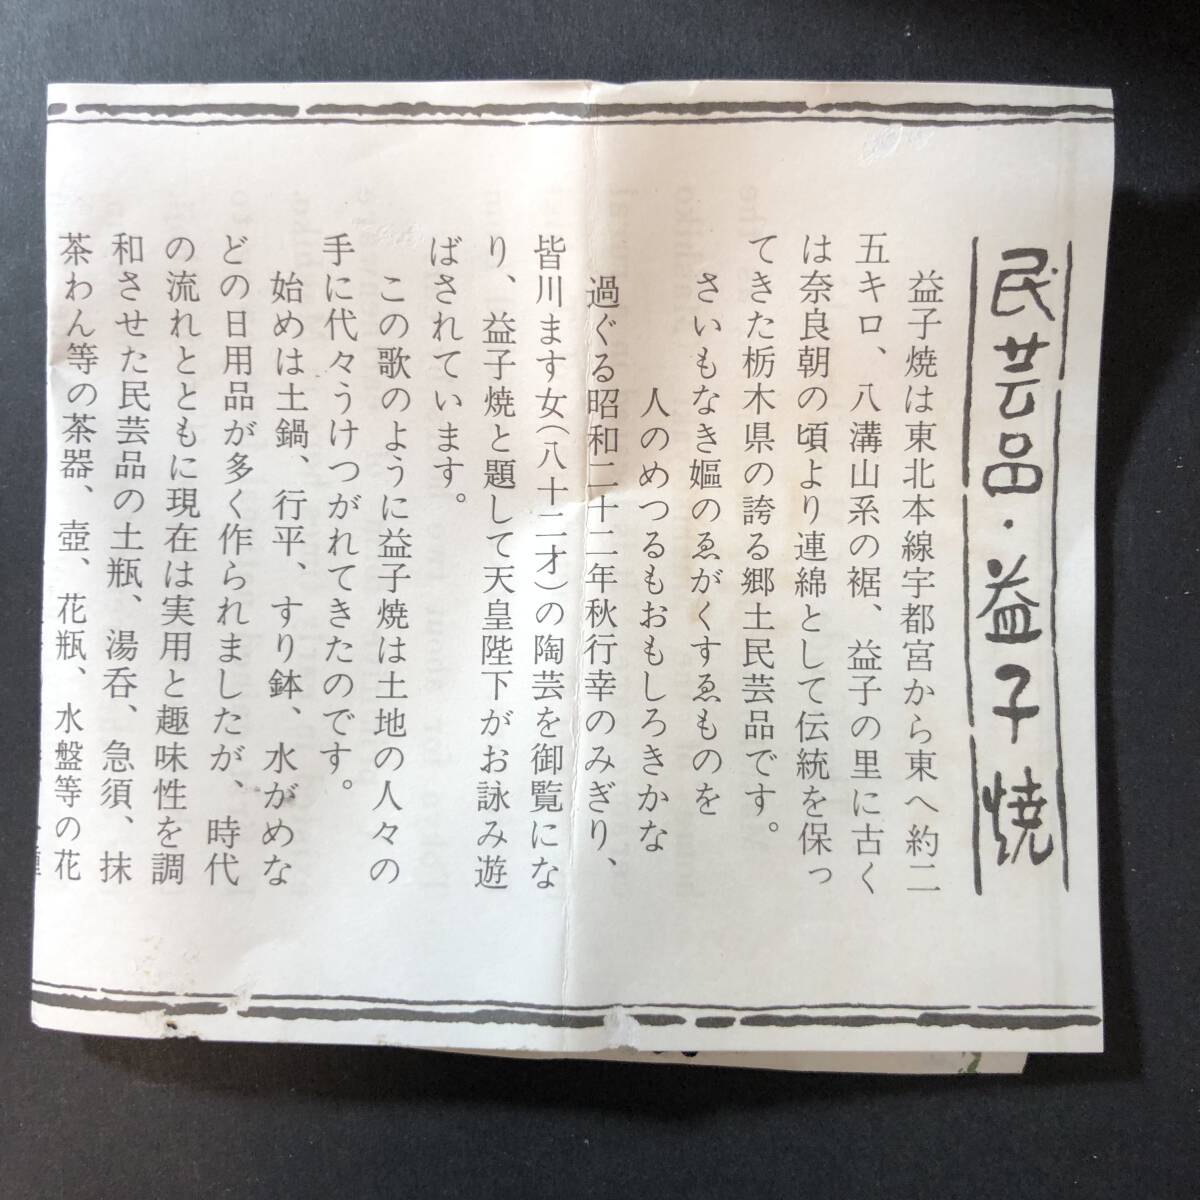 民芸品・益子焼
益子焼は東北本線宇都宮から東へ約二
五キロ、八溝山系の裾、益子の里に古く
は奈良朝の頃より連綿として伝統を保っ
てきた栃木県の誇る郷土民芸品です。
さいもなき嫗のゑがくすゑものを
人のめつるもおもしろきかな
過ぐる昭和二十二年秋行幸のみぎり、
皆川ます女(八十二才)の陶芸を御覧にな
り、益子焼と題して天皇陛下がお詠み遊
ばされています。
この歌のように益子焼は土地の人々の
手に代々うけつがれてきたのです。
始めは土鍋、行平、すり鉢、水がめな
どの日用品が多く作られましたが、時代
の流れとともに現在は実用と趣味性を調
和させた民芸品の土瓶、湯呑、急須、抹
茶わん等の茶器、壺、花瓶、水盤等の花